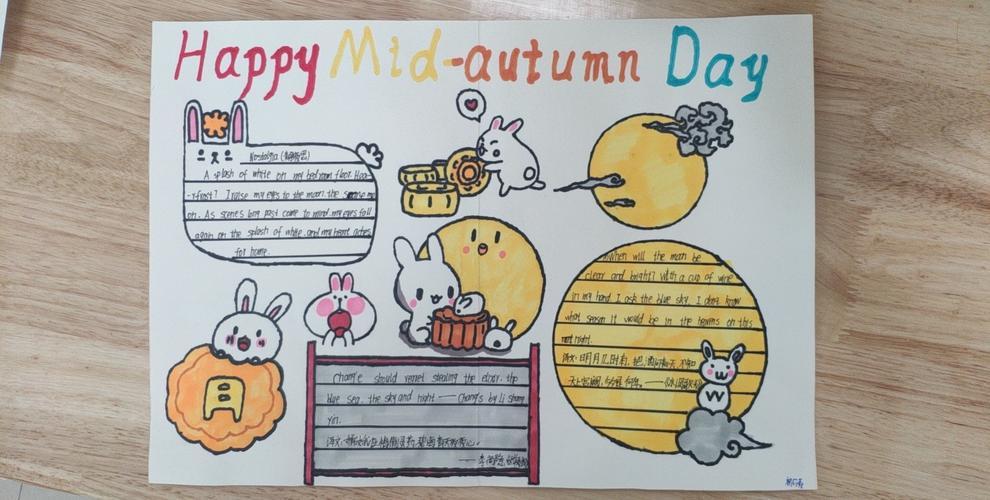 Happy Mid-autumn Day
Nostalgia
A splash of white on my bedroom floor. Hoa-
-rfrost? I raise my eyes to the moon, the same mo
on. As scenes long past come to mind, my eyes fall
again on the splash of white, and my heart aches
for home.
月
Chang'e should regret stealing the elixir, the
blue sea, the sky and night —— Chang'e by Li Shang
yin.
译文: 嫦娥应悔偷灵药,碧海青天夜夜心。
When will the moon be
clear and bright? With a cup of wine
in my hand. I ask the blue sky. I don't know
what season it would be in the heavens on this
night.
译文: 明月几时有,把酒问青天,不知
天上宫阙,今夕是何年。——《水调歌头》